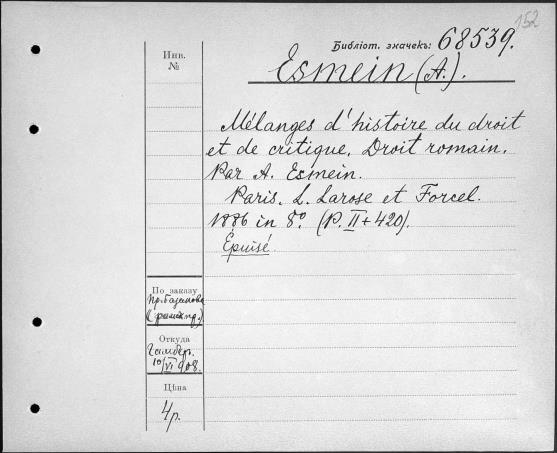 152
Библіот. значекъ: 68539.
Инв.
№
Esmein (A.).
Mélanges d'histoire du droit
et de critique. Droit romain.
Par A. Esmein.
Paris. L. Larose et Forcel.
1886 in 8º. (P. II + 420).
Épuisé
По заказу
пр. Базанова
(римск. пр.)
Откуда
Гамбер.
10/VI 908.
Цѣна
4 р.